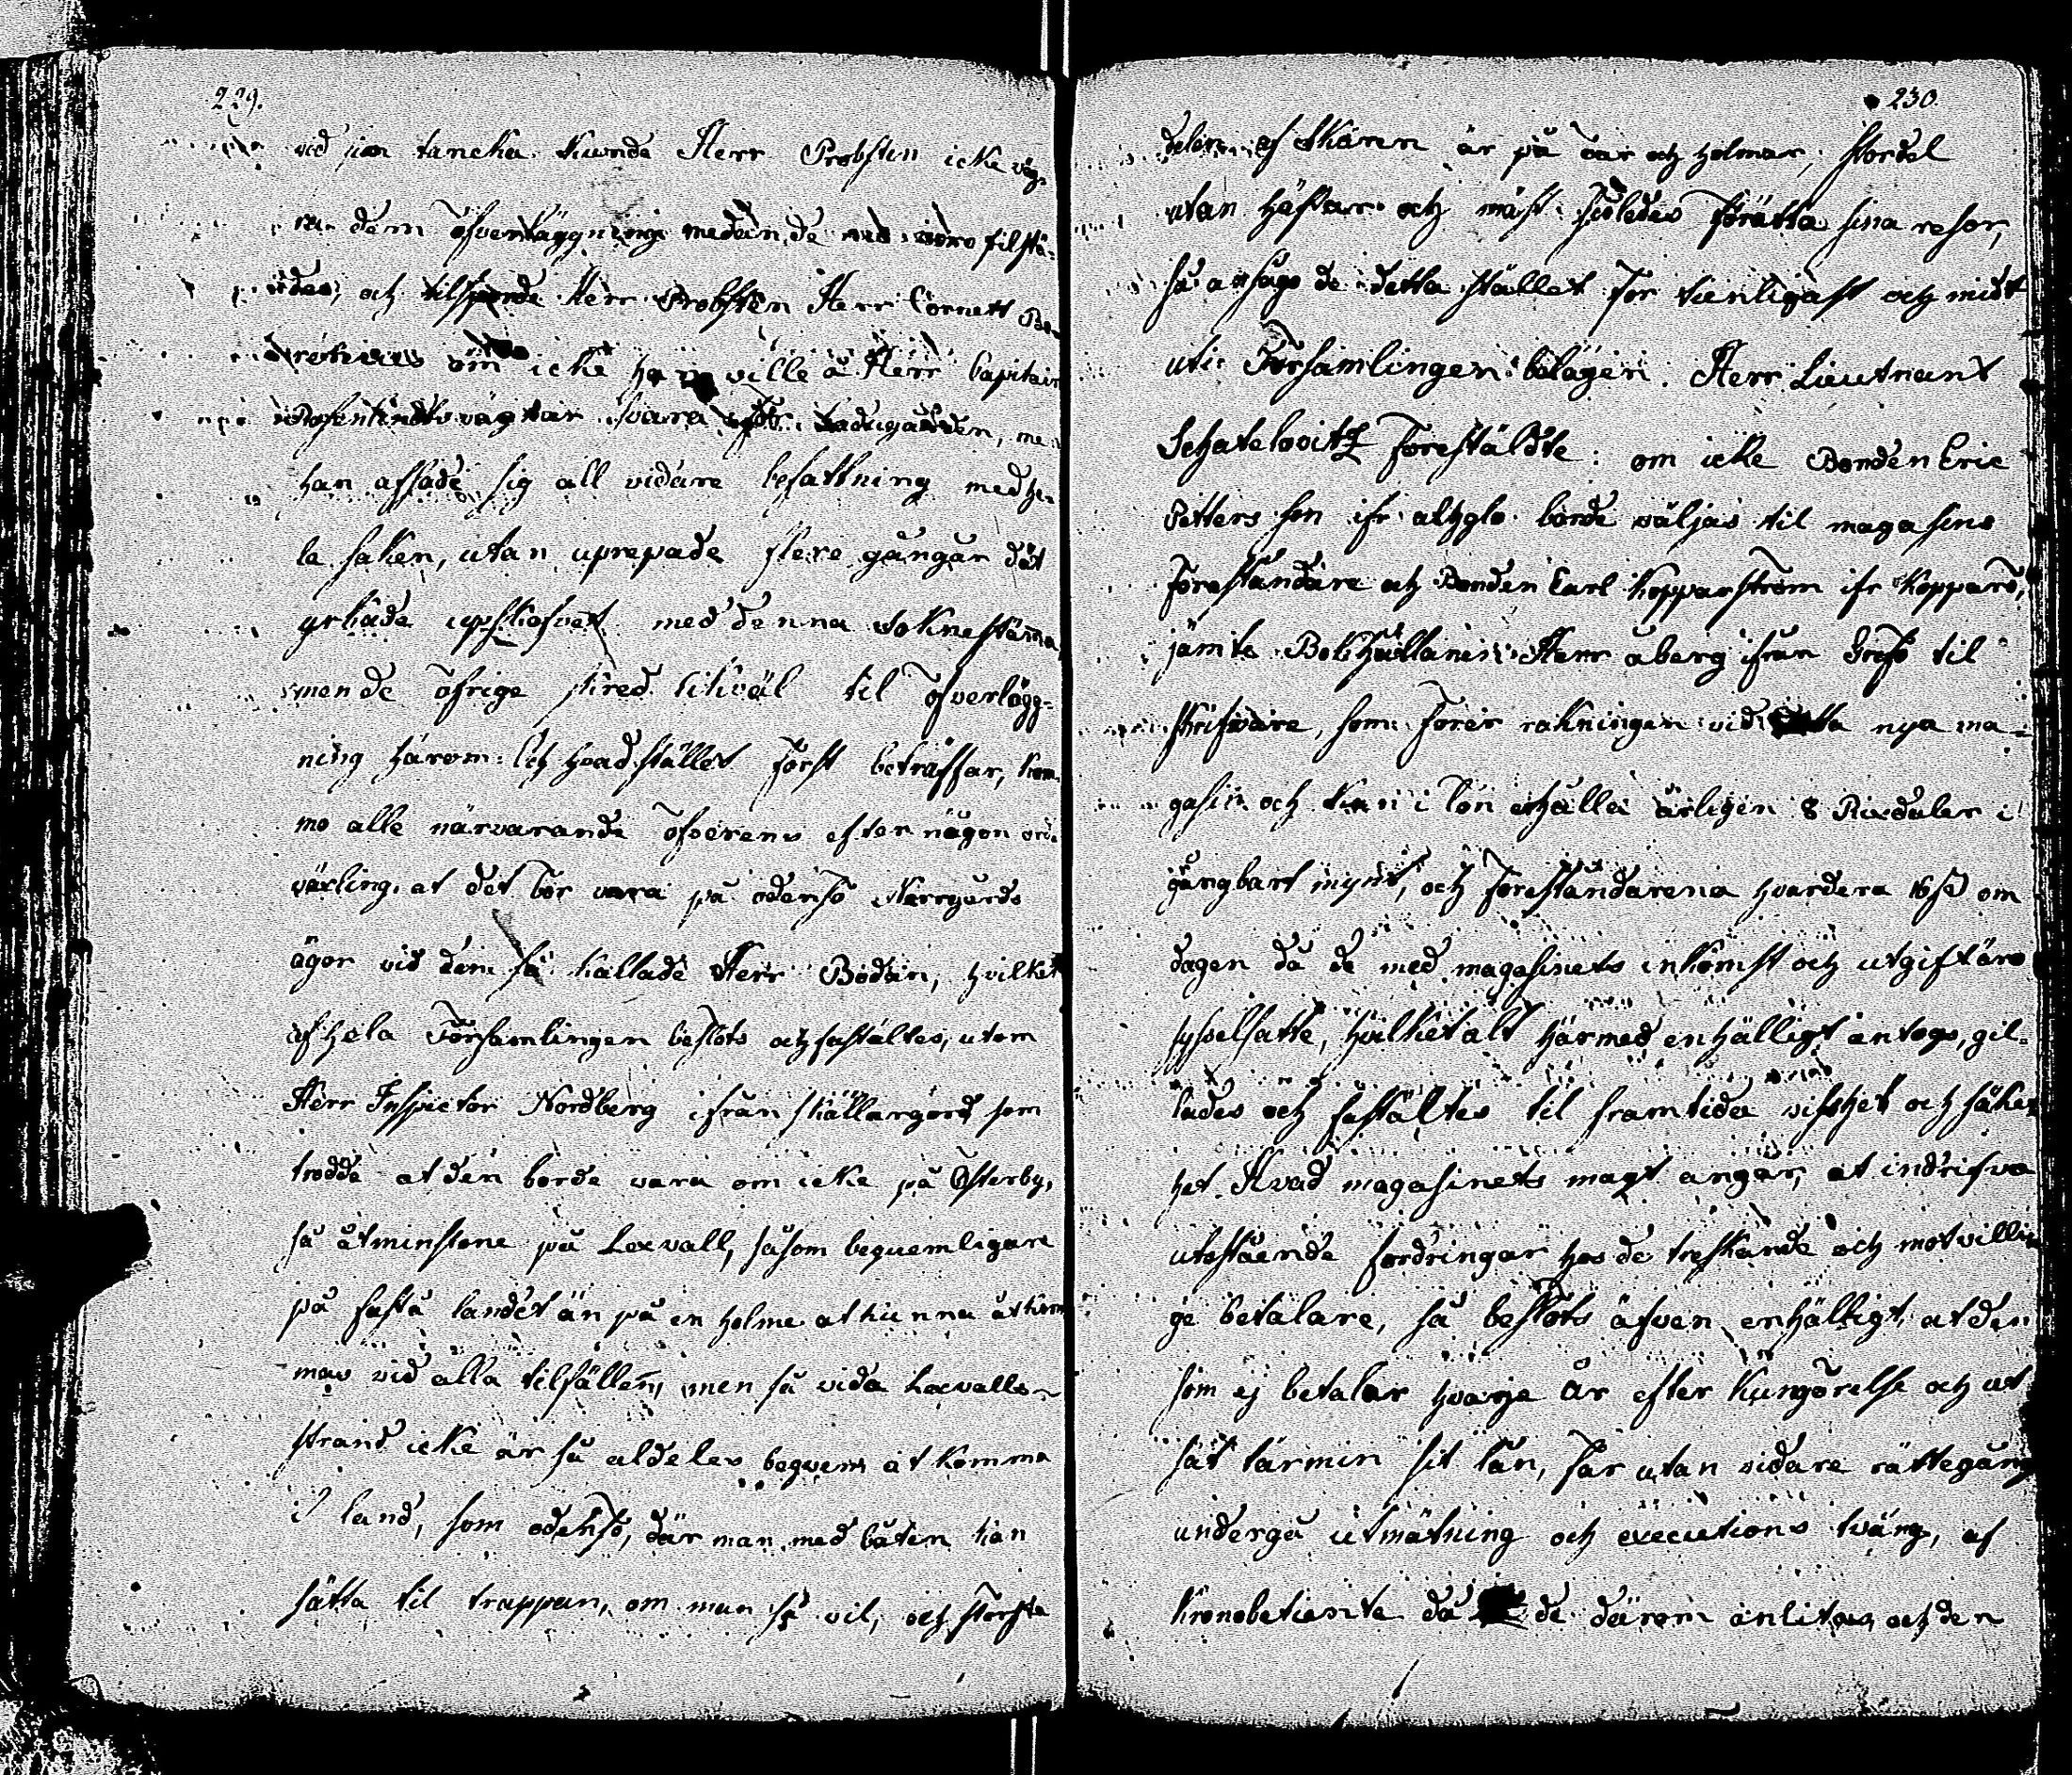 229.
vid sin tancka kunde Herr Probsten icke väg-
ra dem öfverläggning medan de voro tilstä-
des, och tilsporde Herr Probsten Herr Cornett
om icke han ville å Herr Capitain
vägnar svara för Ladugården, me
han afsade sig all vidare befattning med he-
la saken, utan uprepade flere gångar det
yrkade upskofvet med denna Soknestämma
men de öfrige skred likväl til öfverlägg-
ning härom. Och hvad stället först beträffar, kom-
mo alle närvarande öfverens efter någon ord-
växling, at det bör vara på odensö Norrgårds
ägor vid den så kallade Herr Boden, hvilket
af hela Församlingen beslöts och fastältes, utom
Herr Inspector Nordberg ifrån skällargord som
trodde at den borde vara om icke på Österby,
så åtminstone på Loxvall, såsom bequemligare
på fasta landet än på en holme at kunna åtkom-
mas vid alla tilfällen, men så vida Loxvalls-
strand icke är så aldeles bequem at komma
i land, som odensö, där man med båten kan
sätta til trappan, om man så vil, och största
230.
delen af skären är på öar och holmar, stordel
utan hästar och mäst siöledes förätta sina resor,
så ansågo de detta stället för tienligast och midt
uti Församlingen belägen. Herr Lieutnant
Schatelovitz förestäldte: om icke Bonden Eric
Petters son ifr altglo borde väljas til magasins
Föreståndare och Bonden Carl Kopparström ifr Kopparö,
jämte Bokhållaren Herr åberg ifrån Grefö til
skrifvare, som förer räkningen vid detta nya ma-
gasin och kan i lön erhålla årligen 8 Rixdaler i
gångbart mynt, och Föreståndarena hvardera 16 ß om
dagen då de med magasinets inkomst och utgift äro
sysselsatte, hvilket alt härmed enhälligt antogs, gil-
lades och fastältes til framtida visshet och säker
het. Hvad magasinets magt angår, at indrifva
utestående fordringar hos de treskande och motvilli-
ge betalare, så beslöts äfven enhälligt, at den
som ej betalar hvarje år efter kungörelse och ut
sat tärmin sit lån, får utan vidare rättegång
undergå utmätning och executions tvång, af
Kronobetiente då de därom anlitas, och den